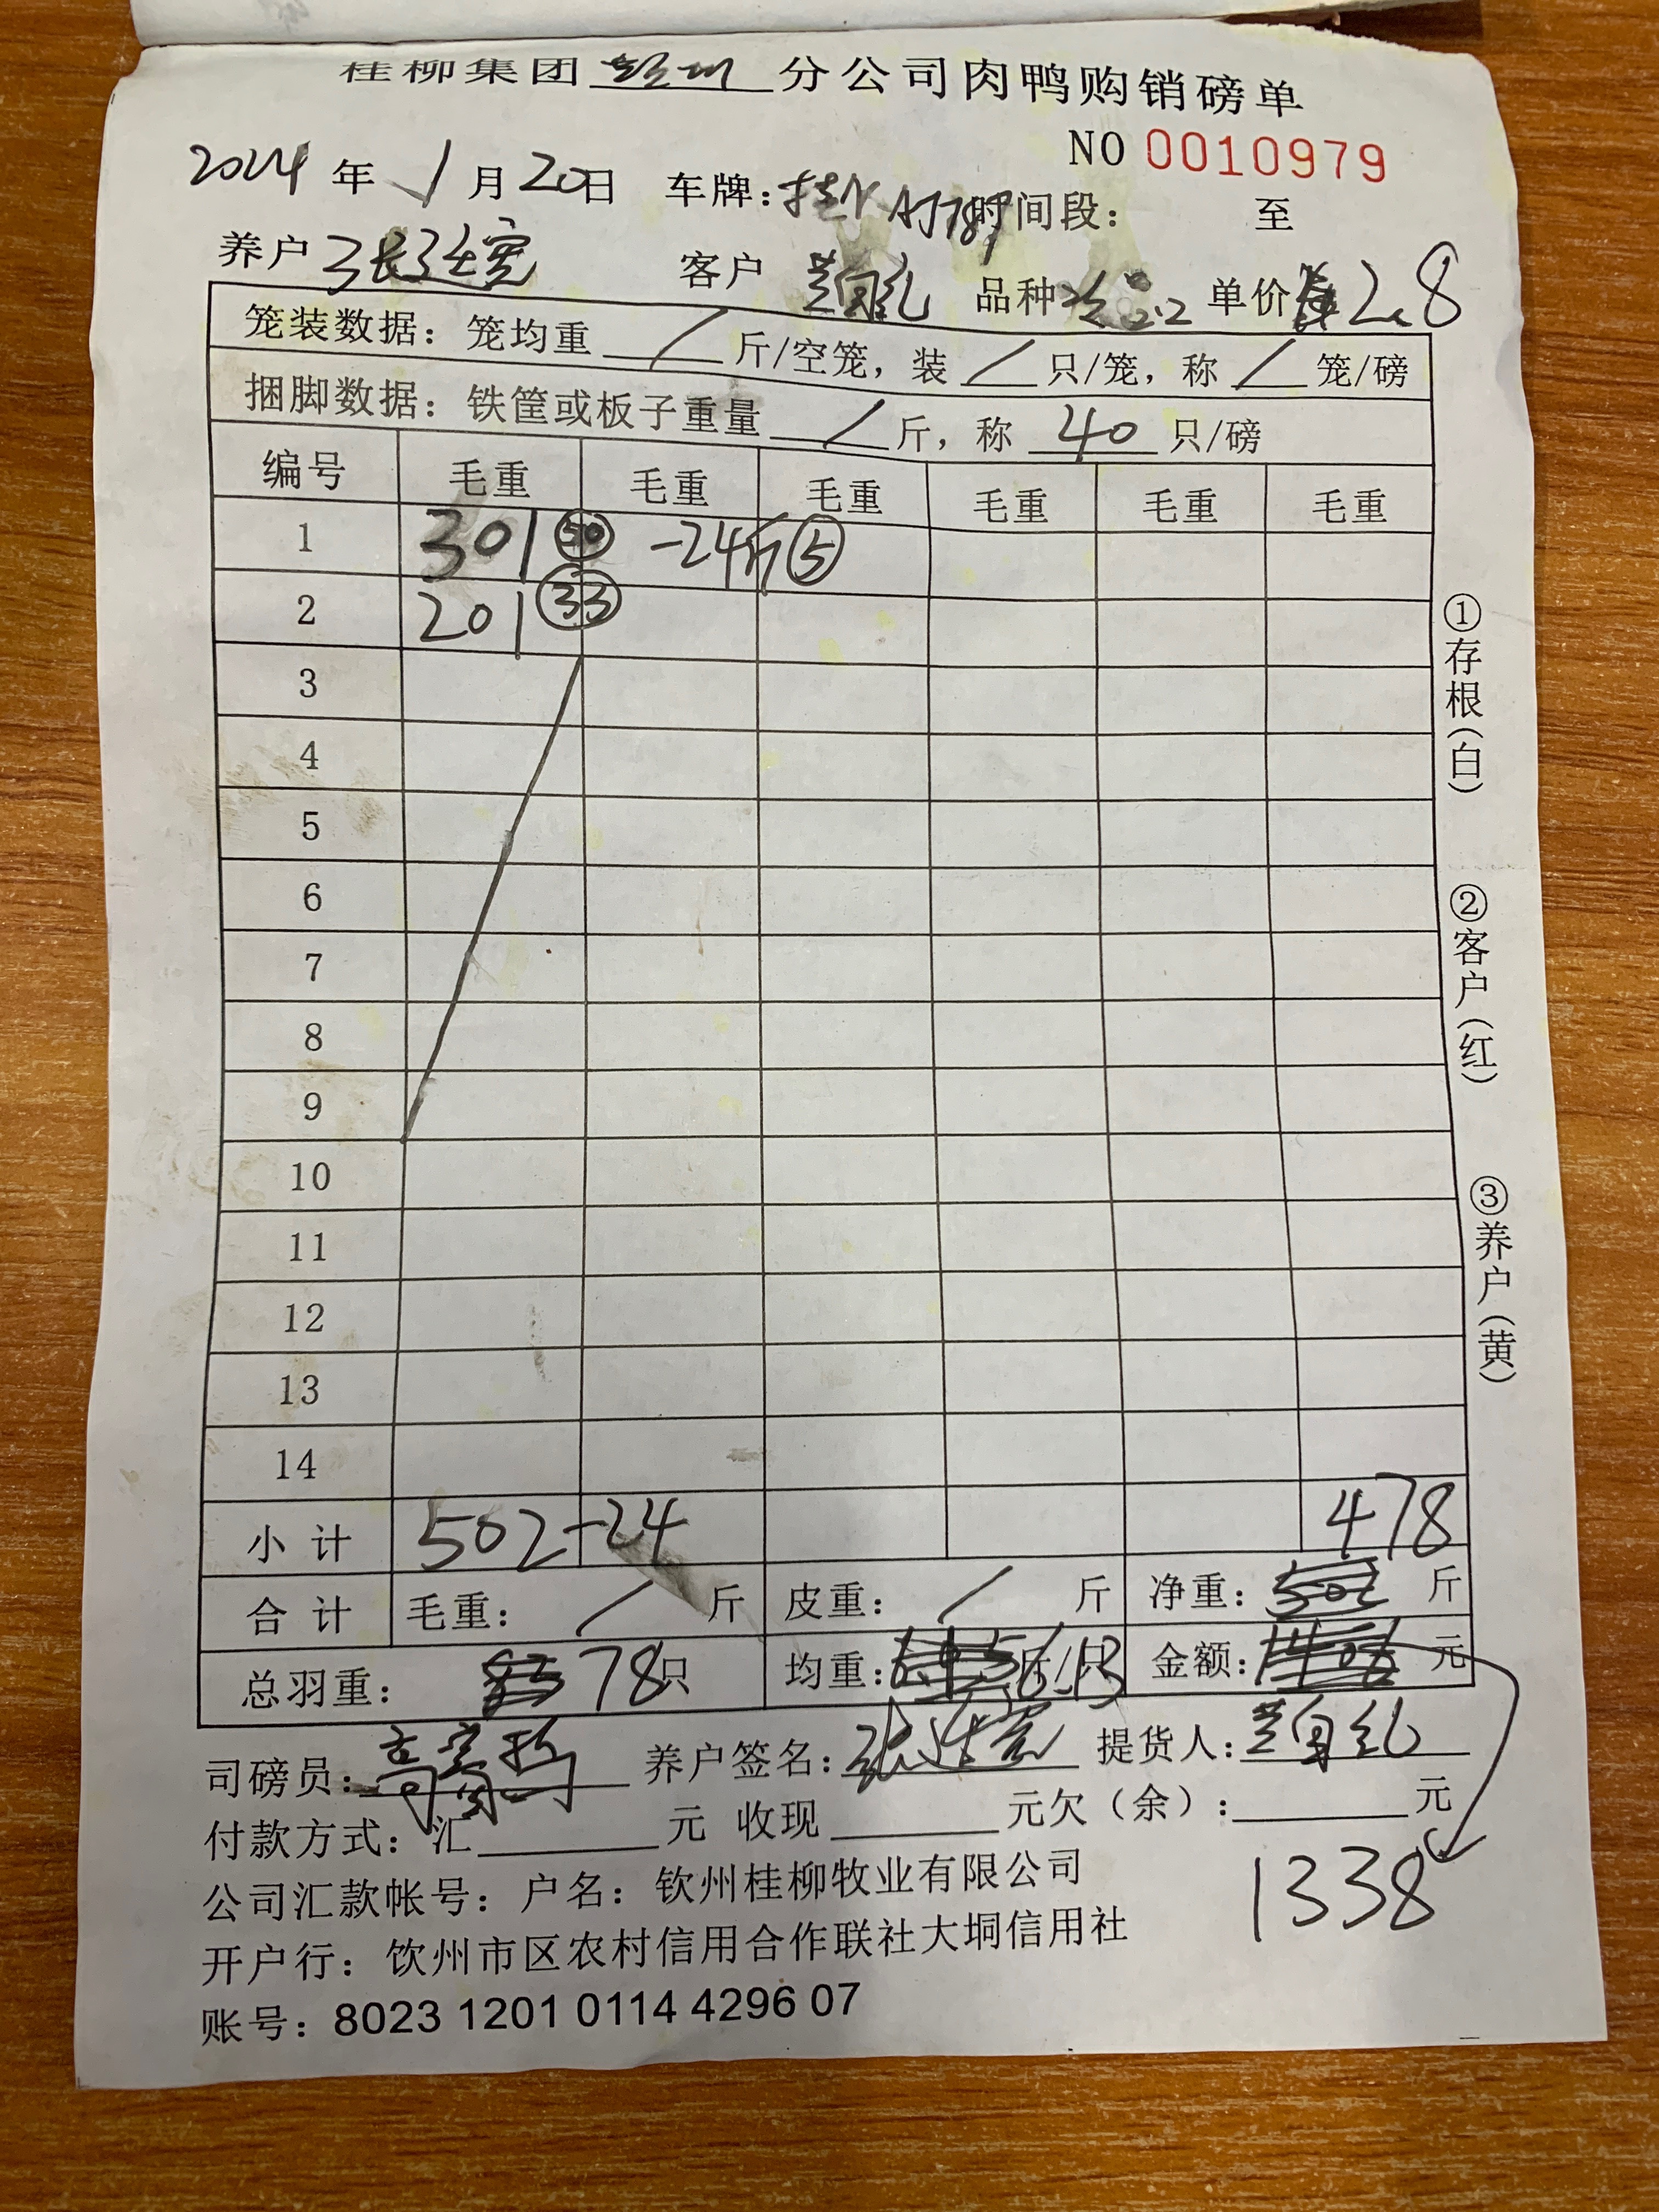 桂柳集团 分公司肉鸭购销磅单
NO 0010979
2024 年 1 月 20日 车牌: 时间段: 至
养户 客户 品种 单价 2.8
笼装数据: 笼均重 / 斤/空笼, 装 / 只/笼, 称 / 笼/磅
捆脚数据: 铁筐或板子重量 / 斤, 称 40 只/磅
编号 毛重 毛重 毛重 毛重 毛重 毛重
1 301 50 -24斤 5
2 201 33
3
4
5
6
7
8
9
10
11
12
13
14
小计 502 -24 478
合计 毛重: / 斤 皮重: / 斤 净重: 502 斤
总羽重: 78只 均重: 6.13 斤/只 金额: 元
司磅员: 养户签名: 提货人:
付款方式: 汇 元 收现 元欠(余): 元
1338
公司汇款帐号: 户名: 钦州桂柳牧业有限公司
开户行: 饮州市区农村信用合作联社大垌信用社
账号: 8023 1201 0114 4296 07
①存根(白)
②客户(红)
③养户(黄)